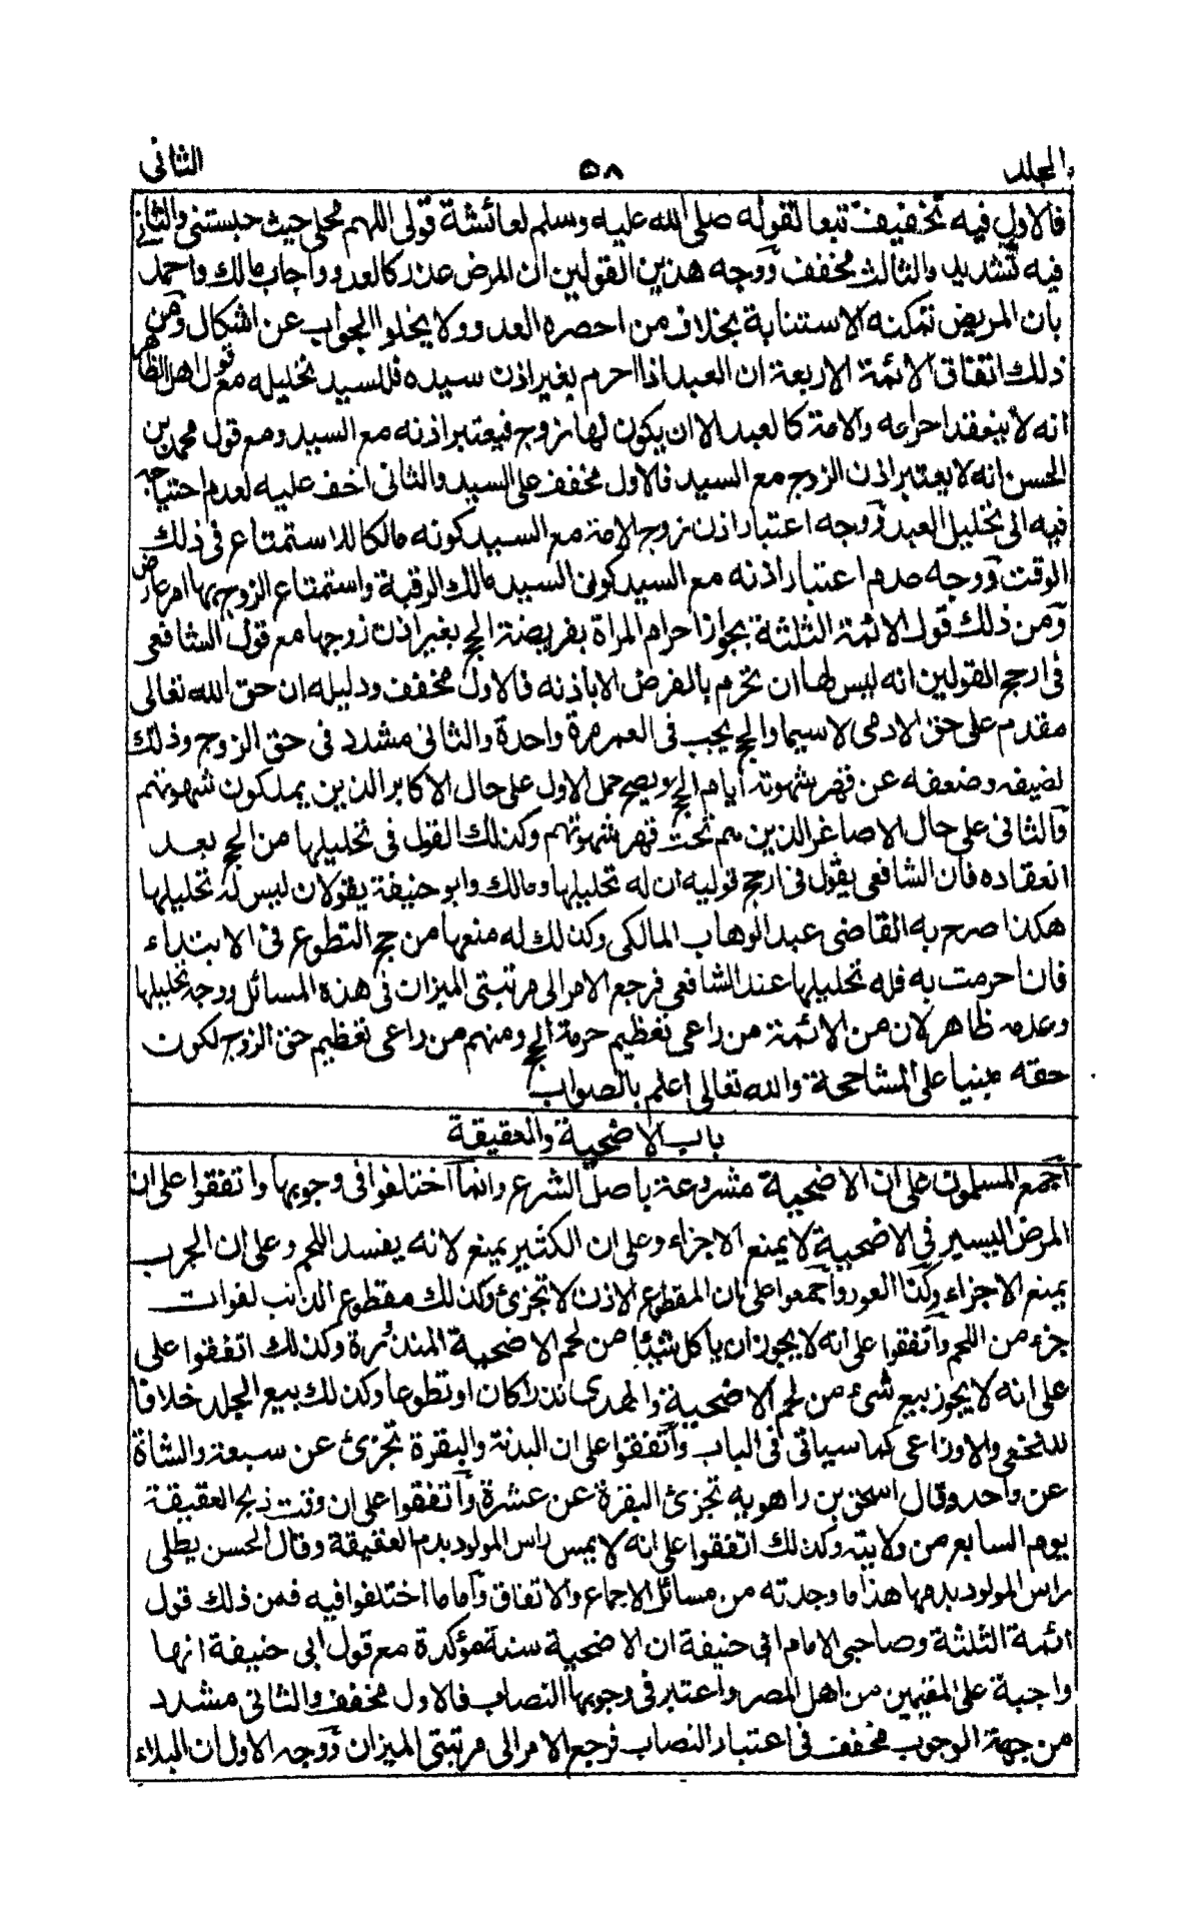 المجلد ٥٨ الثانى
فالاول فيه تخفيف تبعا لقوله صلى الله عليه وسلم لعائشة قولى اللهم محلى حيث حبستنى والثانى
فيه تشديد والثالث مخفف ووجه هذين القولين ان المرض عذر كالعدو واجاب مالك واحمد
بان المريض تمكنه الاستنابة بخلاف من احصره العدو ولا يخلو الجواب عن اشكال ومن
ذلك اتفاق الائمة الاربعة ان العبد اذا احرم بغير اذن سيده فللسيد تحليله مع قول اهل الظاهر
انه لا ينعقد احرامه والامة كالعبد الا ان يكون لها زوج فيعتبر اذنه مع السيد ومع قول محمد بن
الحسن انه لا يعتبر اذن الزوج مع السيد فالاول مخفف على السيد والثانى اخف عليه لعدم احتياجه
فيه الى تحليل العبد ووجه اعتبار اذن زوج الامة مع السيد كونه مالكا للاستمتاع فى ذلك
الوقت ووجه عدم اعتبار اذنه مع السيد كون السيد مالك الرقبة واستمتاع الزوج بها امر عارض
ومن ذلك قول الائمة الثلثة بجواز احرام المراة بفريضة الحج بغير اذن زوجها مع قول الشافعى
فى ارجح القولين انه ليس لها ان تحرم بالفرض الا باذنه فالاول مخفف ودليله ان حق الله تعالى
مقدم على حق الادمى لاسيما والحج يجب فى العمر مرة واحدة والثانى مشدد فى حق الزوج وذلك
لضيقه وضعفه عن قهر شهوته ايام الحج ويصح حمل الاول على حال الاكابر الذين يملكون شهوتهم
والثانى على حال الاصاغر الذين هم تحت قهر شهوتهم وكذلك القول فى تحليلها من الحج بعد
انعقاده فان الشافعى يقول فى ارجح قوليه ان له تحليلها ومالك وابو حنيفة يقولان ليس له تحليلها
هكذا صرح به القاضى عبد الوهاب المالكى وكذلك له منعها من حج التطوع فى الابتداء
فان احرمت به فله تحليلها عند الشافعى فرجع الامر الى مرتبتى الميزان فى هذه المسائل ووجه تحليلها
وعدمه ظاهر لان من الائمة من راعى تعظيم حرمة الحج ومنهم من راعى تعظيم حق الزوج لكون
حقه مبنيا على المشاححة والله تعالى اعلم بالصواب
باب الاضحية والعقيقة
اجمع المسلمون على ان الاضحية مشروعة باصل الشرع وانما اختلفوا فى وجوبها واتفقوا على ان
المرض اليسير فى الاضحية لا يمنع الاجزاء وعلى ان الكثير يمنع لانه يفسد اللحم وعلى ان الجرب
يمنع الاجزاء وكذا العور واجمعوا على ان المقطوع الاذن لا تجزئ وكذلك مقطوع الذنب لفوات
جزء من اللحم واتفقوا على انه لا يجوز ان ياكل شيئا من لحم الاضحية المنذورة وكذلك اتفقوا على
على انه لا يجوز بيع شئ من لحم الاضحية والهدى نذرا كان او تطوعا وكذلك بيع الجلد خلافا
للنخعى والاوزاعى كما سياتى فى الباب واتفقوا على ان البدنة والبقرة تجزئ عن سبعة والشاة
عن واحد وقال اسحق بن راهويه تجزئ البقرة عن عشرة واتفقوا على ان وقت ذبح العقيقة
يوم السابع من ولادته وكذلك اتفقوا على انه لا يمس راس المولود بدم العقيقة وقال الحسن يطلى
راس المولود بدمها هذا ما وجدته من مسائل الاجماع والاتفاق واما ما اختلفوا فيه فمن ذلك قول
ائمة الثلثة وصاحبى الامام ابى حنيفة ان الاضحية سنة مؤكدة مع قول ابى حنيفة انها
واجبة على المقيمين من اهل المصر واعتبر فى وجوبها النصاب فالاول مخفف والثانى مشدد
من جهة الوجوب مخفف فى اعتبار النصاب فرجع الامر الى مرتبتى الميزان ووجه الاول ان البلاء